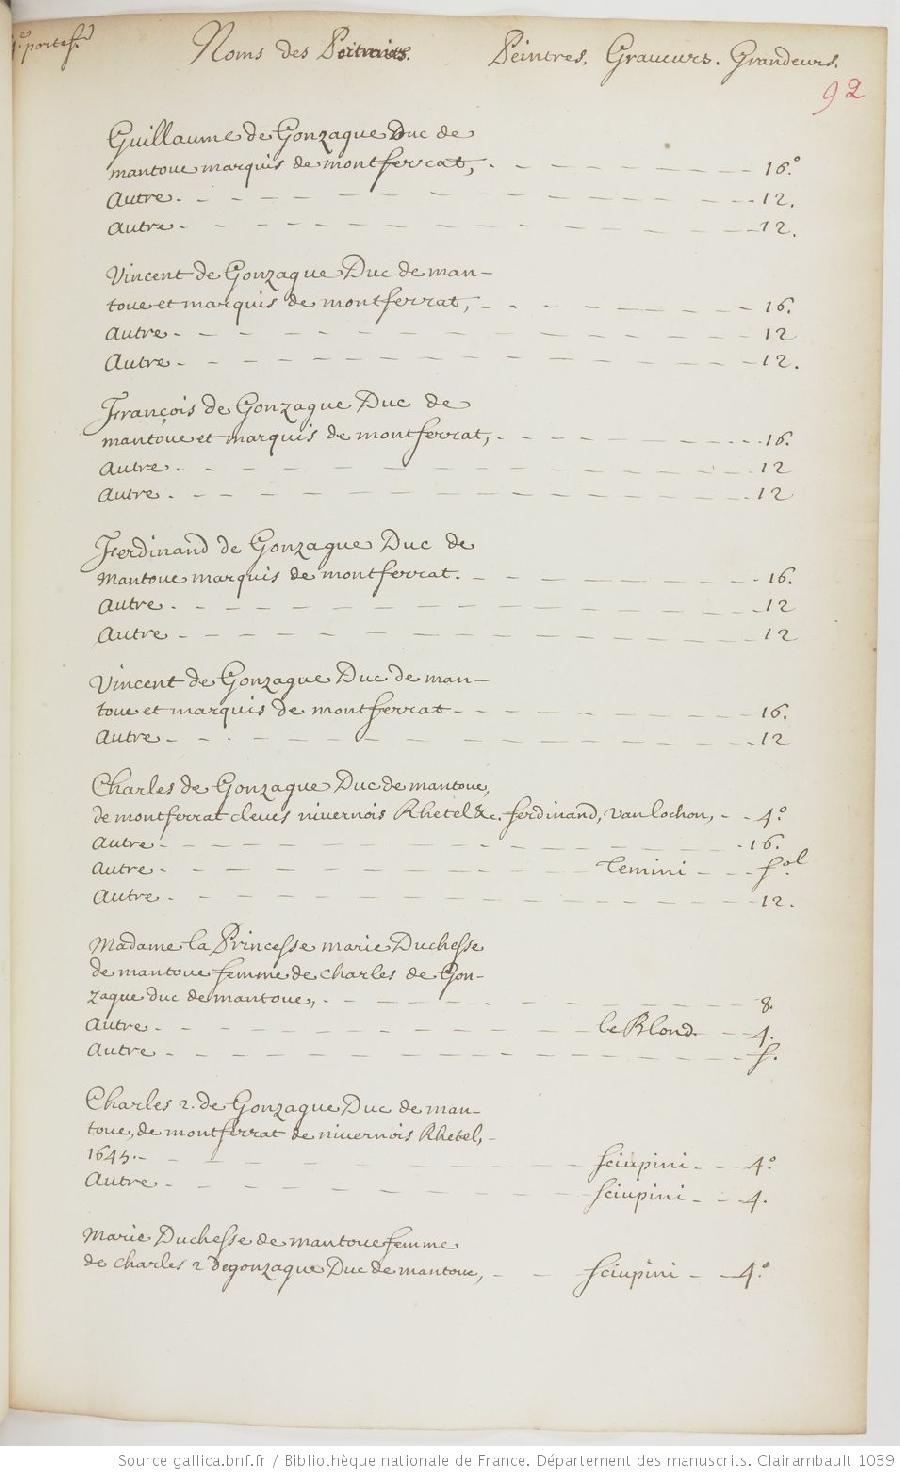 4.e portef.d
Noms des Portraits. Peintres. Graveurs. Grandeurs.
92
Guillaume de Gonzague Duc de
mantoue marquis de montferrat, 16.o
Autre. 12.
Autre. 12.
Vincent de Gonzague Duc de man-
toue et marquis de montferrat, 16.
Autre. 12
Autre. 12.
François de Gonzague Duc de
mantoüe et marquis de montferrat, 16.
Autre. 12
Autre. 12
Ferdinand de Gonzague Duc de
Mantoue marquis de montferrat. 16.
Autre. 12
Autre 12
Vincent de Gonzague Duc de man-
toue et marquis de montferrat 16.
Autre 12
Charles de Gonzague Duc de mantoue,
de montferrat cleves nivernois Rhetel &c. ferdinand, van lochon, 4.o
Autre. 16.
Autre. Temini f.ol
Autre. 12.
Madame la Princesse marie Duchesse
de mantoue femme de charles de Gon-
zague duc de mantoue,. 8.
Autre. le Blond. 4.
Autre. f.
Charles 2. de Gonzague Duc de man-
toue, de montferrat de nivernois Rhetel,
1645. Sciupini. 4.o
Autre. Sciupini 4.
Marie Duchesse de mantoue femme
de charles 2 de gonzague Duc de mantoue, Sciupini 4.o
Source gallica.bnf.fr / Bibliothèque nationale de France. Département des manuscrits. Clairambault 1039